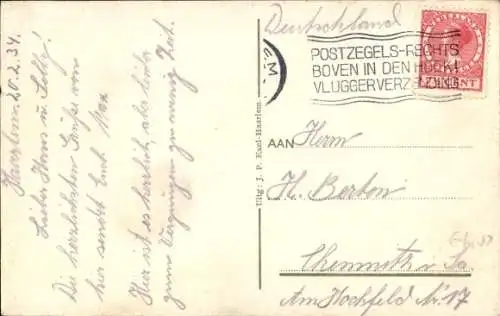 Haarlem 20.2.34.
Lieber Hans u. Lolly!
Die herzlichsten Grüße von
hier sendet Euch Max
Hier ist es herrlich, aber leider
zum Vergnügen zu wenig Zeit.
Uitg: J. P. Haarlem.
Deutschland
POSTZEGELS-RECHTS
BOVEN IN DEN HOEK!
VLUGGER VERZENDING
NEDERLAND
CENT
AAN
Herrn
H. Berton
Chemnitz i. Sa.
Am Hochfeld Nr. 17